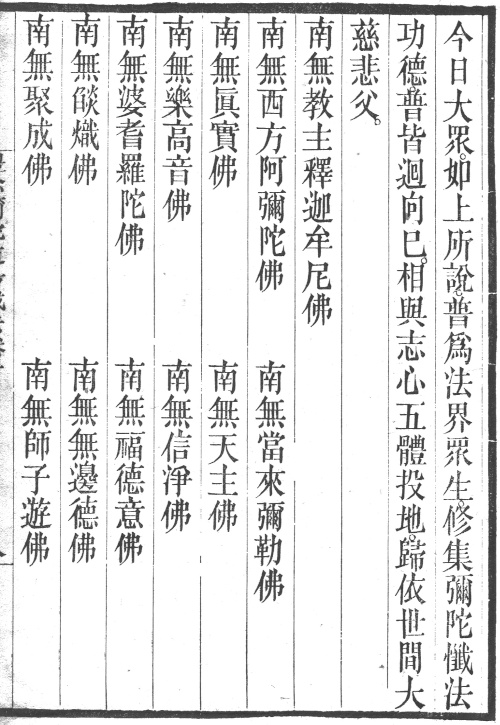 今日大眾。如上所說。普爲法界眾生。修集彌陀懺法
功德。普皆迴向巳。相與志心五體投地。歸依世間大
慈悲父。
南無教主釋迦牟尼佛
南無西方阿彌陀佛　南無當來彌勒佛
南無眞實佛　南無天主佛
南無樂高音佛　南無信淨佛
南無婆耆羅陀佛　南無福德意佛
南無燄熾佛　南無無邊德佛
南無聚成佛　南無師子遊佛